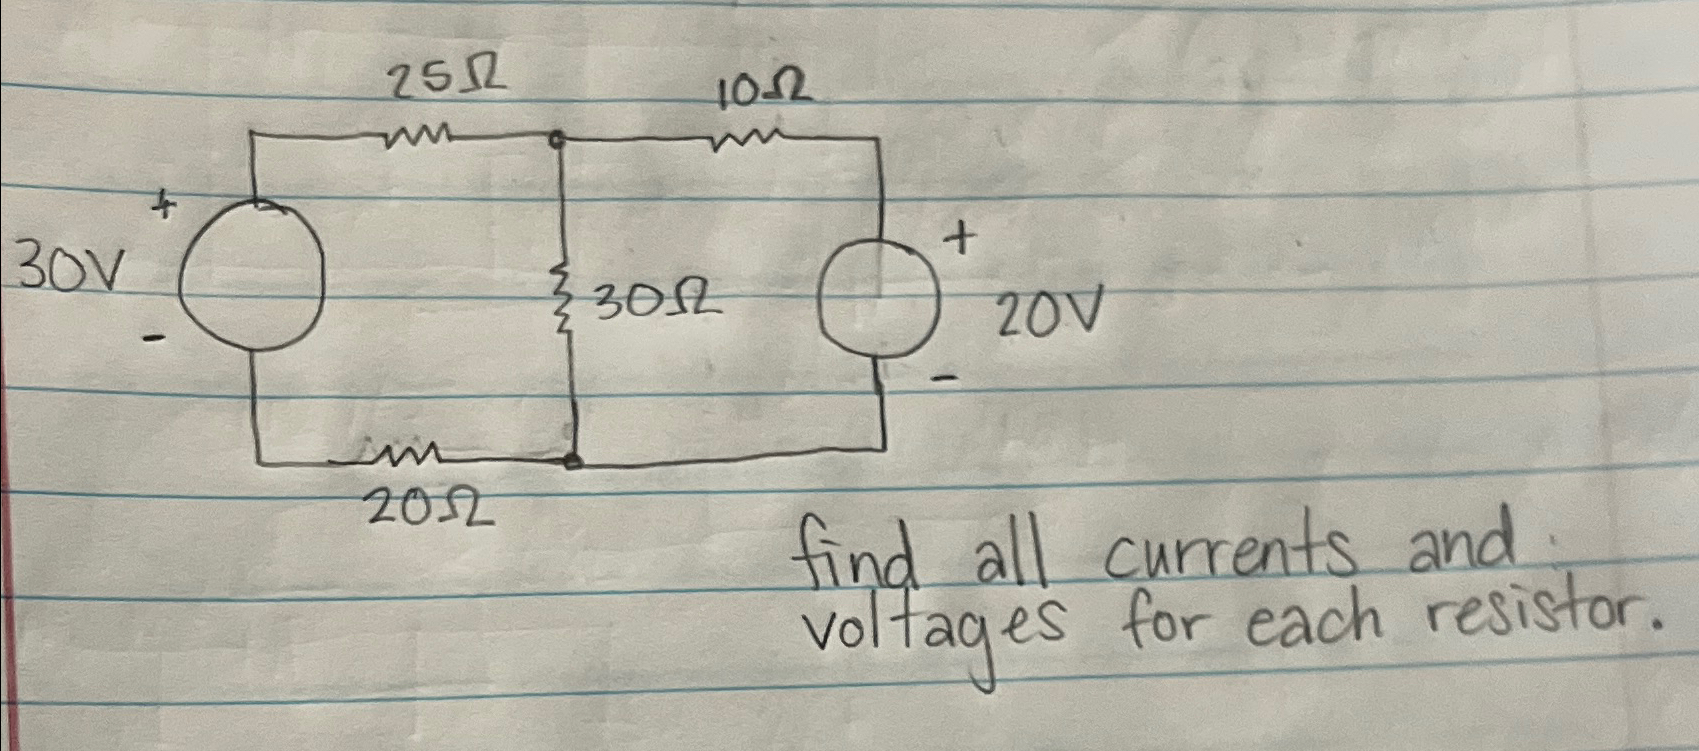 25Ω 10Ω
+
30V
-
30Ω
+
20V
-
20Ω
find all currents and
voltages for each resistor.